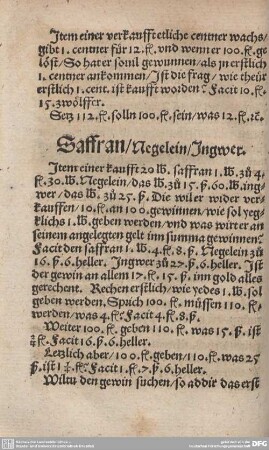 Item einer verkaufft etliche centner wachs/
gibt 1. centner für 12. fl. vnd wenn er 100. fl. ge
löst/ So hat er souil gewunnen/ als jn erstlich
1. centner ankommen/ Ist die frag/ wie theür
erstlich 1. cent. ist kaufft worden? Facit 10. fl.
15. zwölffer.
Setz 112. fl. solln 100. fl. sein/ was 12. fl. ꝛc.
Saffran/ Negelein/ Ingwer.
Item einer kaufft 20 lb. saffran 1. lb. zů 4.
fl. 30. lb. Negelein/ das lb. zů 15. ß. 60 lb. ing
wer/ das lb. zů 25. ß. Die wil er wider ver-
kauffen/ 10. fl. an 100 gewinnen/ wie sol yeg-
klichs 1. lb. geben werden/ vnd was wirt er an
seinem angelegten gelt inn summa gewinnen?
Facit den saffran 1. lb. 4. fl. 8. ß. Negelein zů
16. ß. 6. heller. Ingwer zů 27. ß. 6. heller. Ist
der gewin an allem 17. fl. 15. ß. inn gold alles
gerechent. Rechen erstlich/ wie yedes 1. lb. sol
geben werden/ Sprich 100. fl. müssen 110. fl.
werden/ was 4. fl.? Facit 4. fl. 8. ß.
Weiter 100. fl. geben 110. fl. was 15. ß. ist
fl. Facit 16. ß. 6. heller.
Letzlich aber/ 100. fl. geben/ 110. fl. was 25
ß. ist fl.? Facit 1. fl. 7. ß. 6. heller.
Wiltu den gewin suchen/ so addir das erst